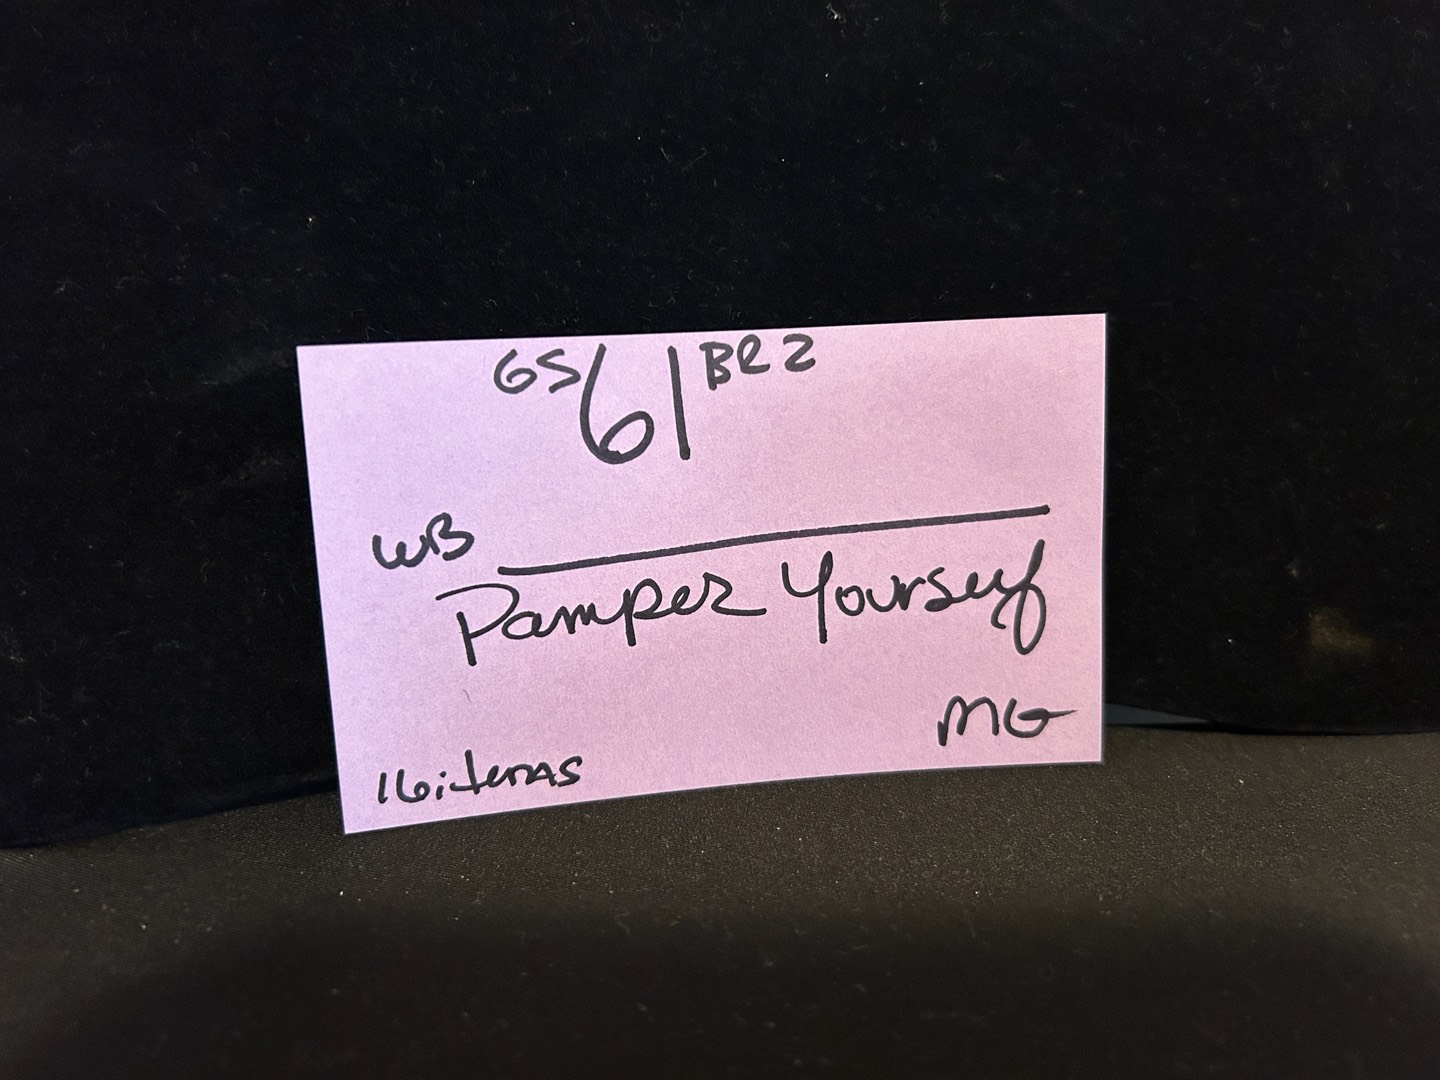 GS 61 BR2
WB
Pamper Yourself
MG
16 items